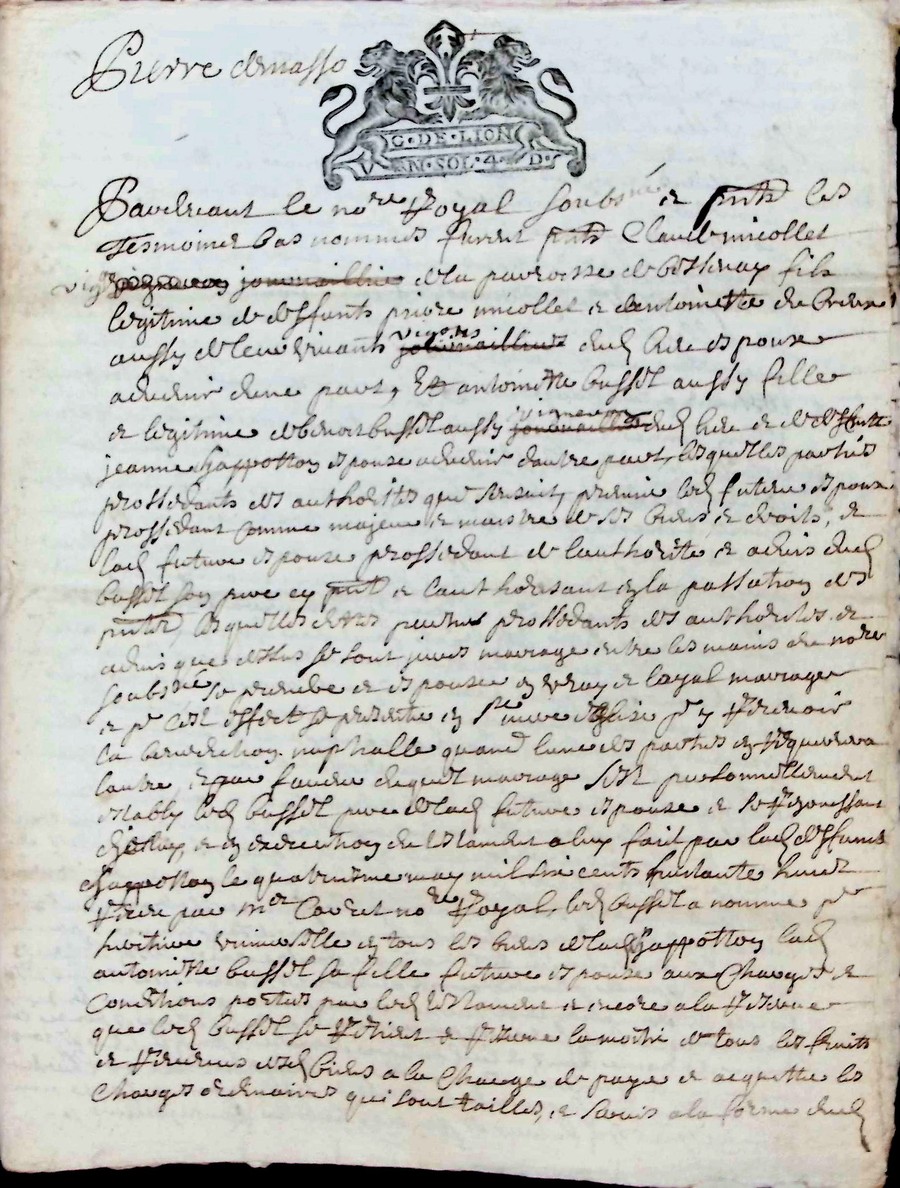 Pierre demasso
G · DE · LION
V N · SOL · 4 · D ·
Pardevant le nore Royal soubsné et pnts les
tesmoins bas nommés furent pnts Claude micollet
vig de la parroisse de fils
legitime de deffunts piere micollet et dentoinette
aussy de leur vivants vigons dud lieu espoux
advenir dune part, Et antoinette bussot aussy fille
et legitime de benoit bussot aussy vigneron dud lieu et de deffunte
jeanne Chappottoy espouse advenir dautre part, lesquelles parties
proceddants des authorités que sensuit, premier led futeur espoux
proceddant comme majeur et maistre de ses biens et droits, et
lad future espouse proceddant de lauthorité et advis dud
bussot soy pere ey pnt et lauthorisant ey la passatioy des
pntes, lesquelles dittes parties proceddants des authorités et
advis que dessus se sont jurés mariage entre les mains du nore
soubsné se prendre et espouser ey vray et loyal mariage
et pr cest effect se presenter ey Ste mere esglise pr y Recevoir
la benedictioy nuptialle quand lune des parties ey Requerrera
lautre, et ey faveur duquel mariage sest personnellement
estably led bussot pere de lad future espouse et se Rejouissant
dicelluy, et ey executioy du testament a luy fait par lad deffunte
Chappottoy le quatriesme may mil six cents huict
Receu par Mer nore Royal, led bussot a nommé pr
heritiere universelle ey tous les biens de lad Chappottoy lad
antoinette bussot sa fille future espouse aux Charges et
Conditions portés par led testament et encore a la Reserve
que led bussot se Retient et Reserve la moitié de tous les fruits
et Revenus desd biens a la Charge de payer et acquitter les
Charges ordinaires qui sont tailles, et servis a la forme dud